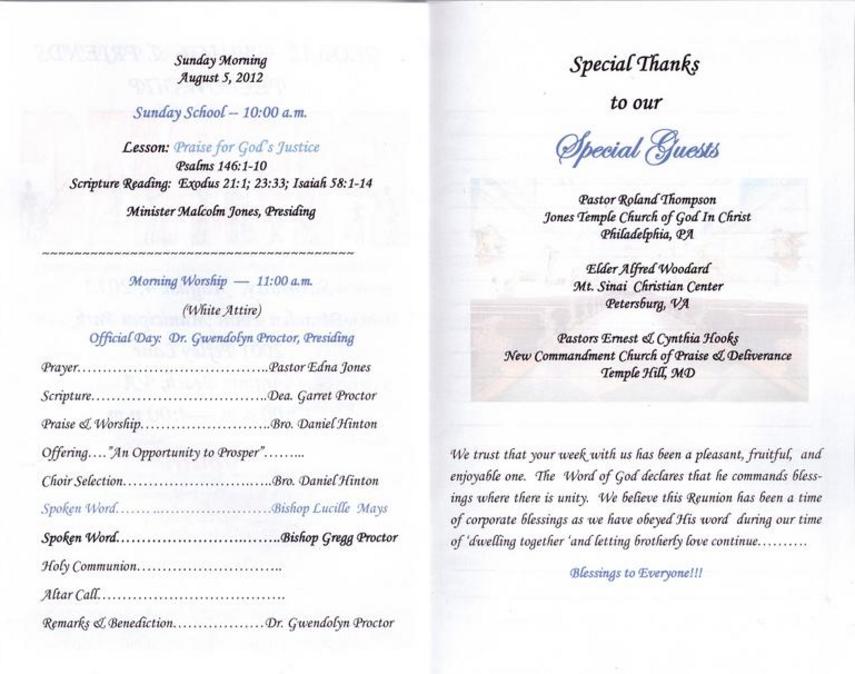 Sunday Morning
August 5, 2012
Sunday School -- 10:00 a.m.
Lesson: Praise for God's Justice
Psalms 146:1-10
Scripture Reading: Exodus 21:1; 23:33; Isaiah 58:1-14
Minister Malcolm Jones, Presiding
~~~~~~~~~~~~~~~~~~~~~~~~~~~~~~~~~~~~~~~
Morning Worship — 11:00 a.m.
(White Attire)
Official Day: Dr. Gwendolyn Proctor, Presiding
Prayer……………………………….Pastor Edna Jones
Scripture……………………………Dea. Garret Proctor
Praise & Worship…………………….Bro. Daniel Hinton
Offering…."An Opportunity to Prosper"……...
Choir Selection……………………..…..Bro. Daniel Hinton
Spoken Word…… ...…………………Bishop Lucille Mays
Spoken Word………………………...Bishop Gregg Proctor
Holy Communion……………………..
Altar Call……………………………
Remarks & Benediction………………Dr. Gwendolyn Proctor
Special Thanks
to our
Special Guests
Pastor Roland Thompson
Jones Temple Church of God In Christ
Philadelphia, PA
Elder Alfred Woodard
Mt. Sinai Christian Center
Petersburg, VA
Pastors Ernest & Cynthia Hooks
New Commandment Church of Praise & Deliverance
Temple Hill, MD
We trust that your week with us has been a pleasant, fruitful, and
enjoyable one. The Word of God declares that he commands bless-
ings where there is unity. We believe this Reunion has been a time
of corporate blessings as we have obeyed His word during our time
of 'dwelling together 'and letting brotherly love continue……….
Blessings to Everyone!!!